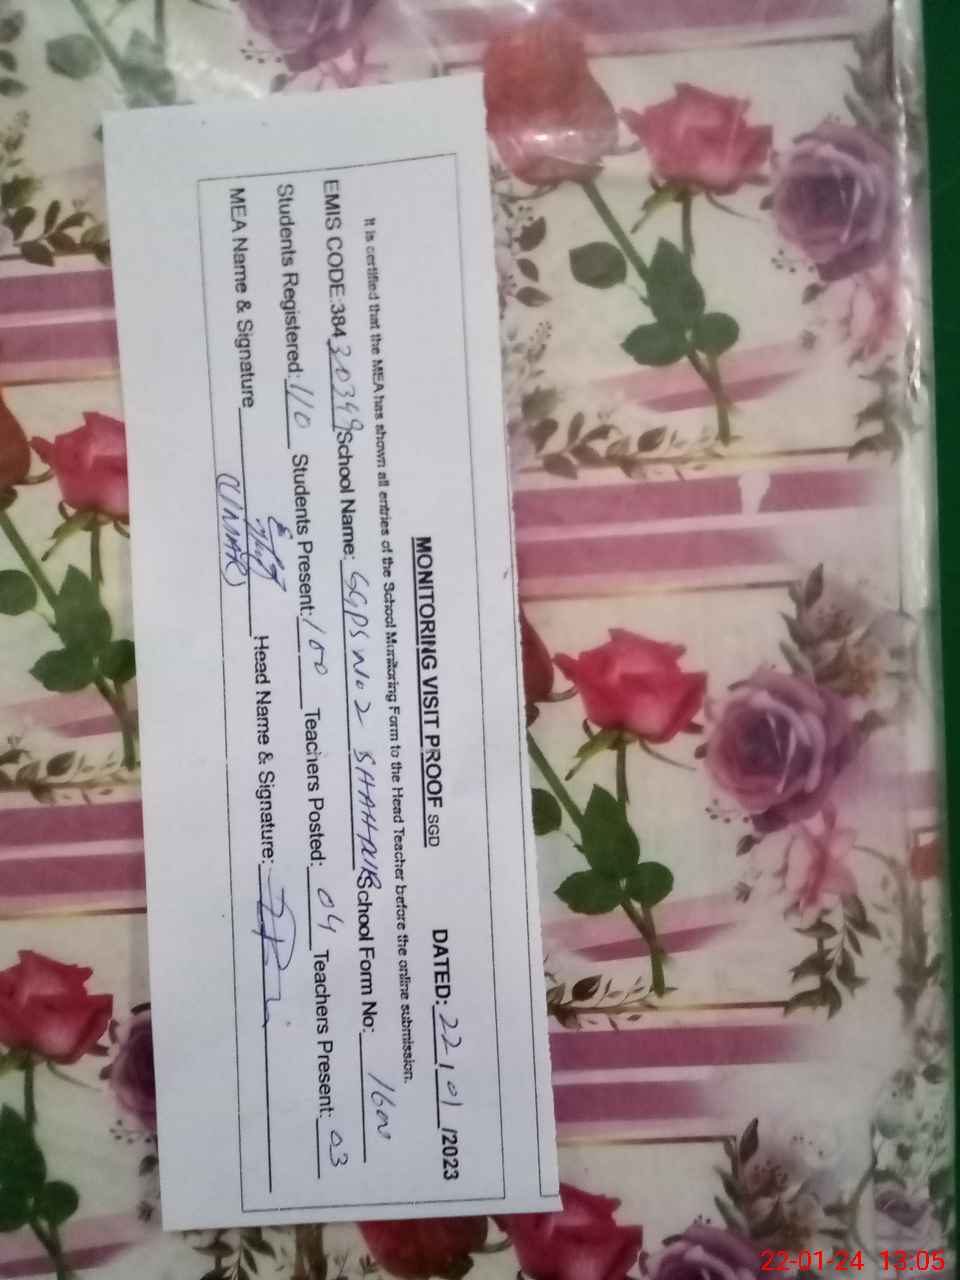 MONITORING VISIT PROOF SGD DATED: 22/01/2023
It is certified that the MEA has shown all entries of the School Monitoring Form to the Head Teacher before the online submission.
EMIS CODE:38430349 School Name: GGPS No 2 SHAHPUR School Form No: 1600
Students Registered: 110 Students Present: 100 Teachers Posted: 04 Teachers Present: 03
MEA Name & Signature Head Name & Signature:
(UMAR)
22-01-24 13:05